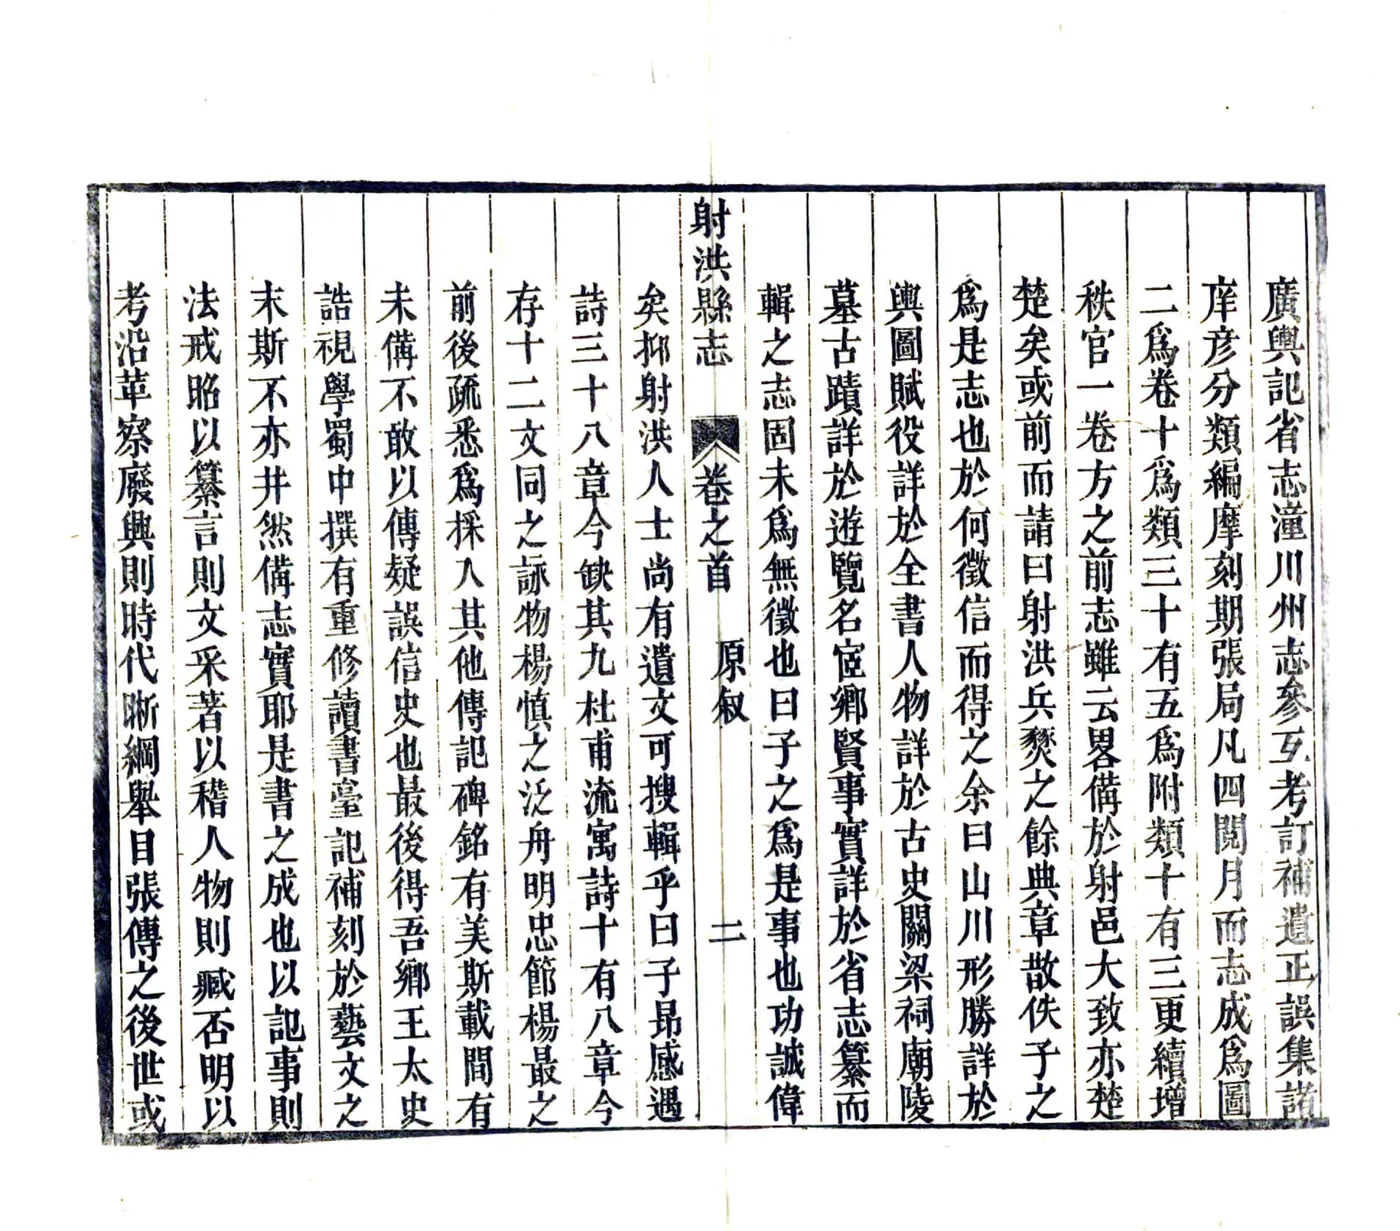 廣輿記省志潼川州志參互考訂補遺正誤集諸
庠彦分類編摩刻期張局凡四閱月而志成爲圖
二爲卷十爲類三十有五爲附類十有三更續增
秩官一卷方之前志雖云畧備於射邑大致亦楚
楚矣或前而請曰射洪兵燹之餘典章散佚子之
爲是志也於何徵信而得之余曰山川形勝詳於
輿圖賦役詳於全書人物詳於古史關梁祠廟陵
墓古蹟詳於遊覽名宦鄉賢事實詳於省志纂而
輯之志固未爲無徵也曰子之爲是事也功誠偉
射洪縣志 卷之首 原叙 二
矣抑射洪人士尚有遺文可搜輯乎曰子昻感遇
詩三十八章今缺其九杜甫流寓詩十有八章今
存十二文同之詠物楊慎之泛舟明忠節楊最之
前後疏悉爲採入其他傳記碑銘有美斯載間有
未備不敢以傳疑誤信史也最後得吾鄉王太史
誥視學蜀中撰有重修讀書臺記補刻於藝文之
末斯不亦井然備志實耶是書之成也以記事則
法戒昭以纂言則文采著以稽人物則臧否明以
考沿革察廢興則時代晰綱舉目張傳之後世或